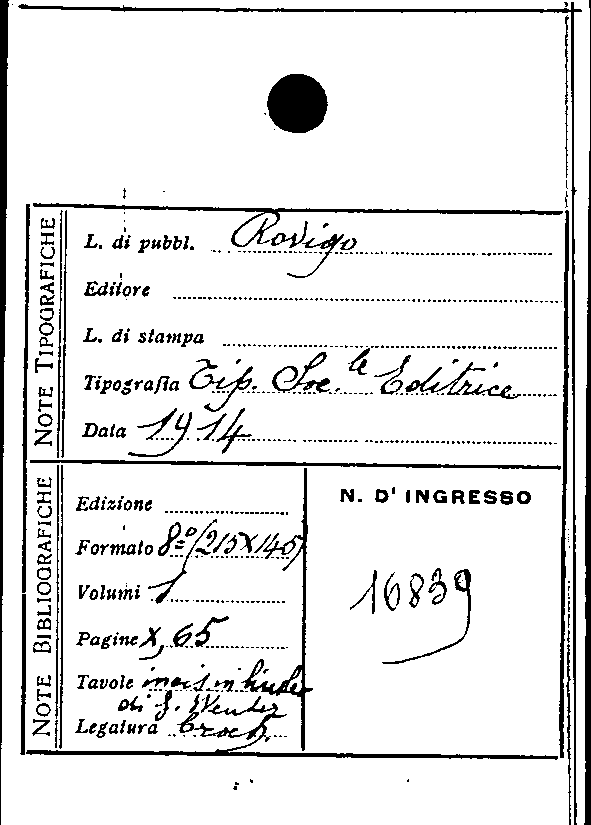 NOTE TIPOGRAFICHE
L. di pubbl. Rovigo
Editore
L. di stampa
Tipografia Tip. Soc.le Editrice
Data 1914
NOTE BIBLIOGRAFICHE
Edizione
Formato 8º (215X145)
Volumi 1
Pagine X, 65
Tavole incis. in
di J.
Legatura broch.
N. D' INGRESSO
16839